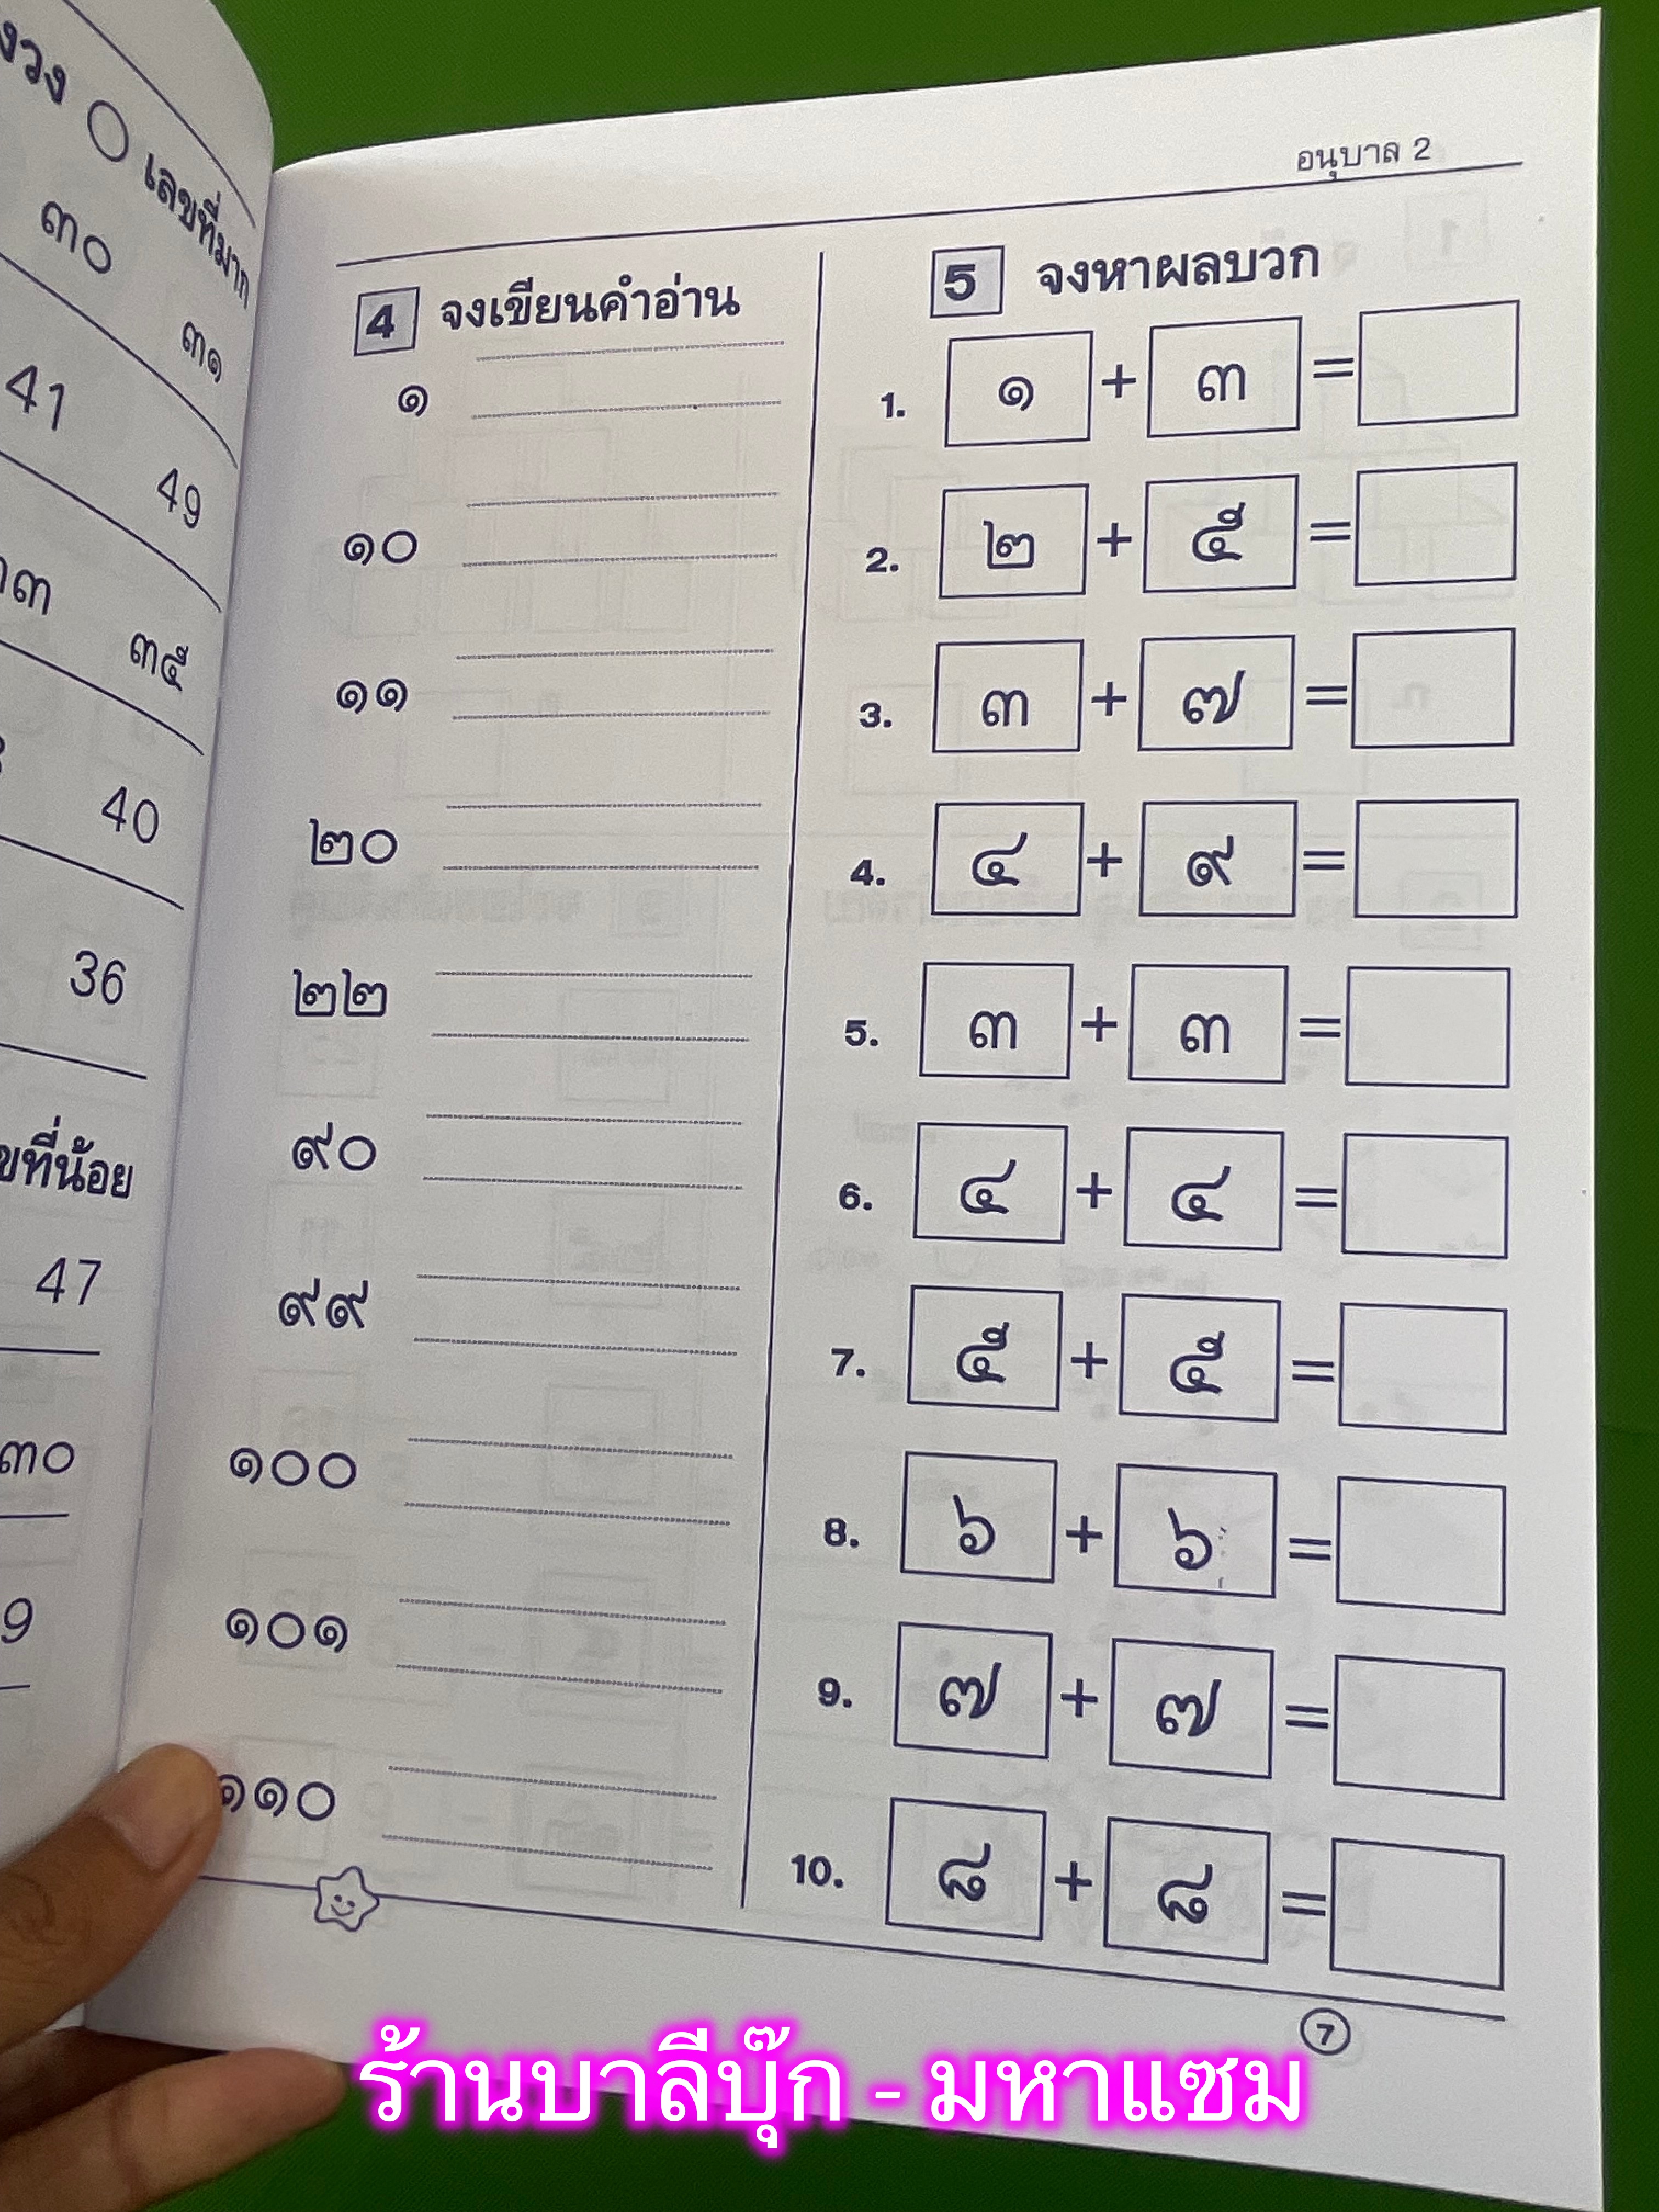 งวง ○ เลขที่มาก
๓๐
๓๑
41
49
๓
๓๕
40
36
ที่น้อย
47
๓๐
9
อนุบาล 2
4 จงเขียนคำอ่าน
๑
๑๐
๑๑
๒๐
๒๒
๙๐
๙๙
๑๐๐
๑๐๑
๑๑๐
5 จงหาผลบวก
1. ๑ + ๓ =
2. ๒ + ๕ =
3. ๓ + ๗ =
4. ๔ + ๙ =
5. ๓ + ๓ =
6. ๔ + ๔ =
7. ๕ + ๕ =
8. ๖ + ๖ =
9. ๗ + ๗ =
10. ๘ + ๘ =
7
ร้านบาลีบุ๊ก - มหาแซม